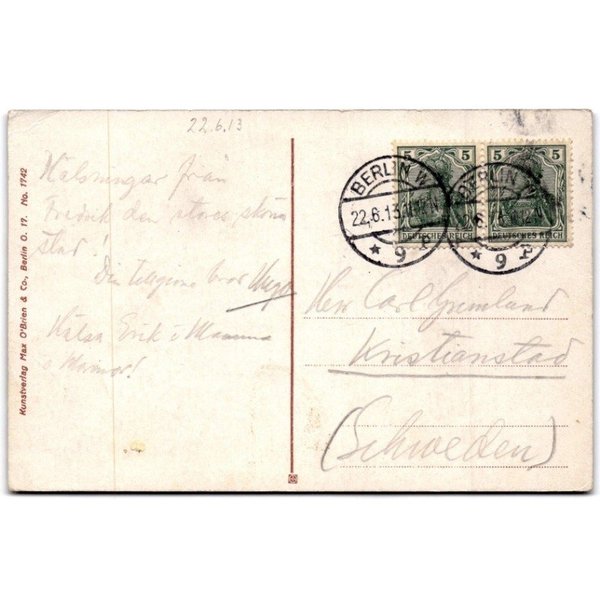 22.6.13
Hälsningar från
Fredrik den stores stora
stad!
Din tillgifne bror
Hälsa Erik & Mamma
o
Kunstverlag Max O'Brien & Co., Berlin O. 17. No. 1742
5 5
DEUTSCHES REICH
5 5
DEUTSCHES REICH
BERLIN W
22.6.13.
* 9 f
BERLIN W
* 9 f
Herr Carl
Kristianstad
(Schweden)